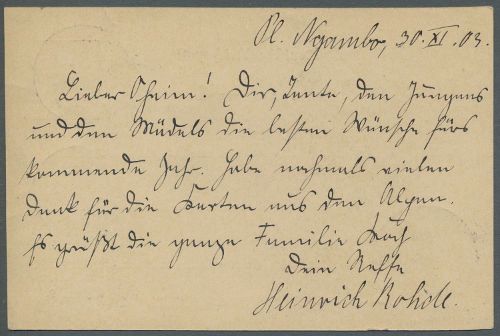 Pl. Ngambo, 30. XI. 03.
Lieber Oheim! Dir, Tante, den Jungens
und den Mädels die besten Wünsche fürs
kommende Jahr. Habe nochmals vielen
Dank für die Karten aus den Alpen.
Es grüßt die ganze Familie
Dein Neffe
Heinrich Rohde.